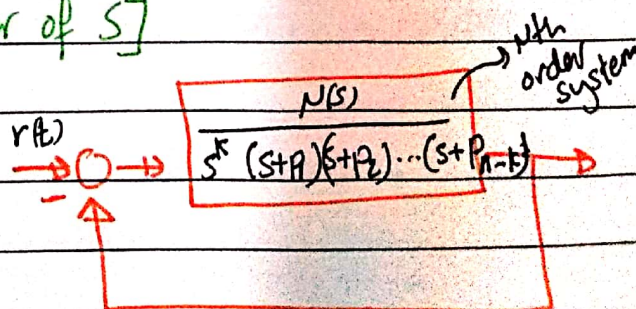 r of S]
Nth
order
system
N(s)
r(t)
s^k (s+P1)(s+P2)...(s+Pn-k)
-